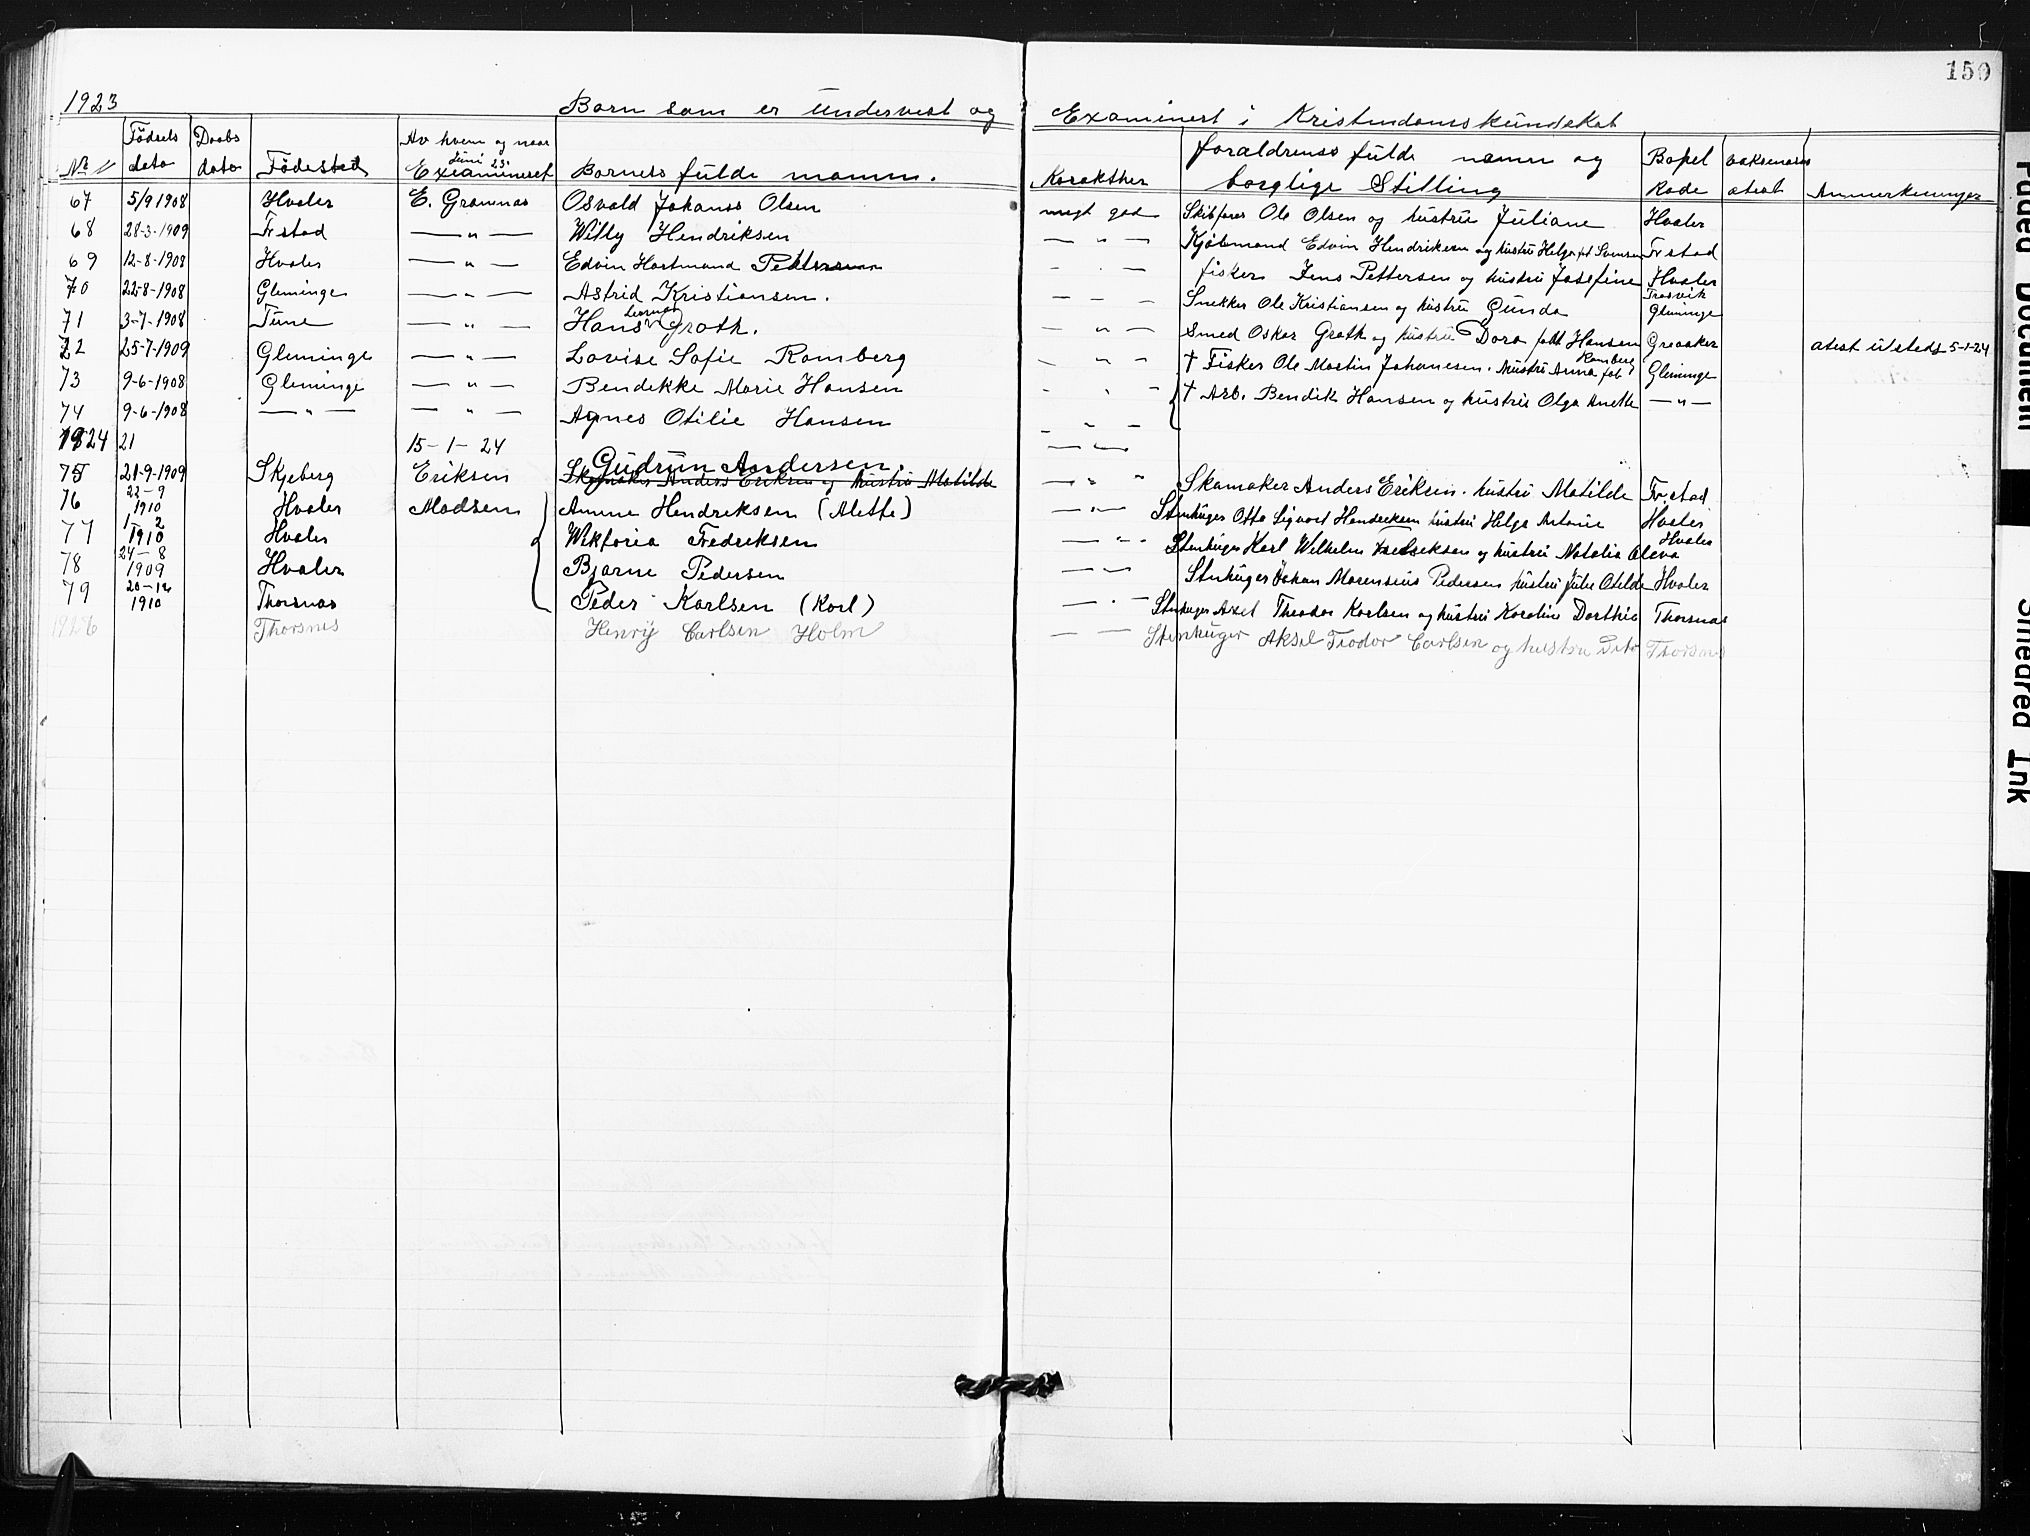 150
1923 Børn som er undervest og Examinert i Kristendomskundskab
No Fødsels dato Daabs dato Fødested Av hvem og naar Juni 23. Examineret Børness fulde namn. Karakther foraldrenss fulde namn og borglige Stilling Bopel Rode vaksenares atest Anmerkninger
67 5/9 1908 Hvaler E. Gramnas Osvald Johanss Olsen megt god Skibsfører Ole Olsen og hustru Juliane Hvaler
68 28-3-1909 Fr stad — " — Willy Hendriksen — " — Edvin Hendriksen og hustru Helga føt Svensen Fr stad
69 12-8-1908 Hvaler — " — Edvin Hartmand Pettersen — " — fisker Jens Pettersen og hustru Josefine Hvaler
70 22-8-1908 Gleminge — " — Astrid Kristiansen. — — — Snekker Ole Kristiansen og hustru Gunda Trosvik Gleminge
71 3-7-1908 Tune — " — Hans Groth. — " — Smed Oskar Groth og hustru Dora født Hansen Greaaker
72 25-7-1909 Gleminge — " — Lovise Sofie Ramberg — " — † Fisker Ole Martin Johanesen. hustru Anna føt Ramberg Gleminge atest utstedt 5-1-24
73 9-6-1908 Gleminge — " — Bendekke Marie Hansen — " — † Arb. Bendik Hansen og hustru Olga Anette — " —
74 9-6-1908 — " — — " — Agnes Otilie Hansen — " —
1924 21 15-1-24 — " —
75 21-9-1909 Skjeberg Eriksen Gudrun Andersen. Anders Eriksen og hustru Matilde — " — Skomaker Anders Eriksen. hustru Matilde Fr. stad
76 22-9 1910 Hvaler Madsen Anne Hendreksen (Alette) — " — Stenhuger Otto Sigvart Hendreksen hustru Helga Antonie Hvaler
77 1-2 1910 Hvaler Wiktoria Fredriksen — " — Stenhuger Karl Wilhelm og hustru Natalia Oleva Hvaler
78 24-8 1909 Hvaler Bjarne Pedersen — " — Stenhuger Johan Marensius Pedersen hustru Julie Otelde Hvaler
79 20-12 1910 Thorsnas Peder Karlsen (Karl) — " — Stenhuger Axel Theodor Karlsen og hustru Karoline Dorthea Thorsnas
1926 Thorsnes Henry Carlsen Holm — — Stenhuger Aksel Teodor Carlsen og hustru Thorsnes
Faded Document
Smeared Ink